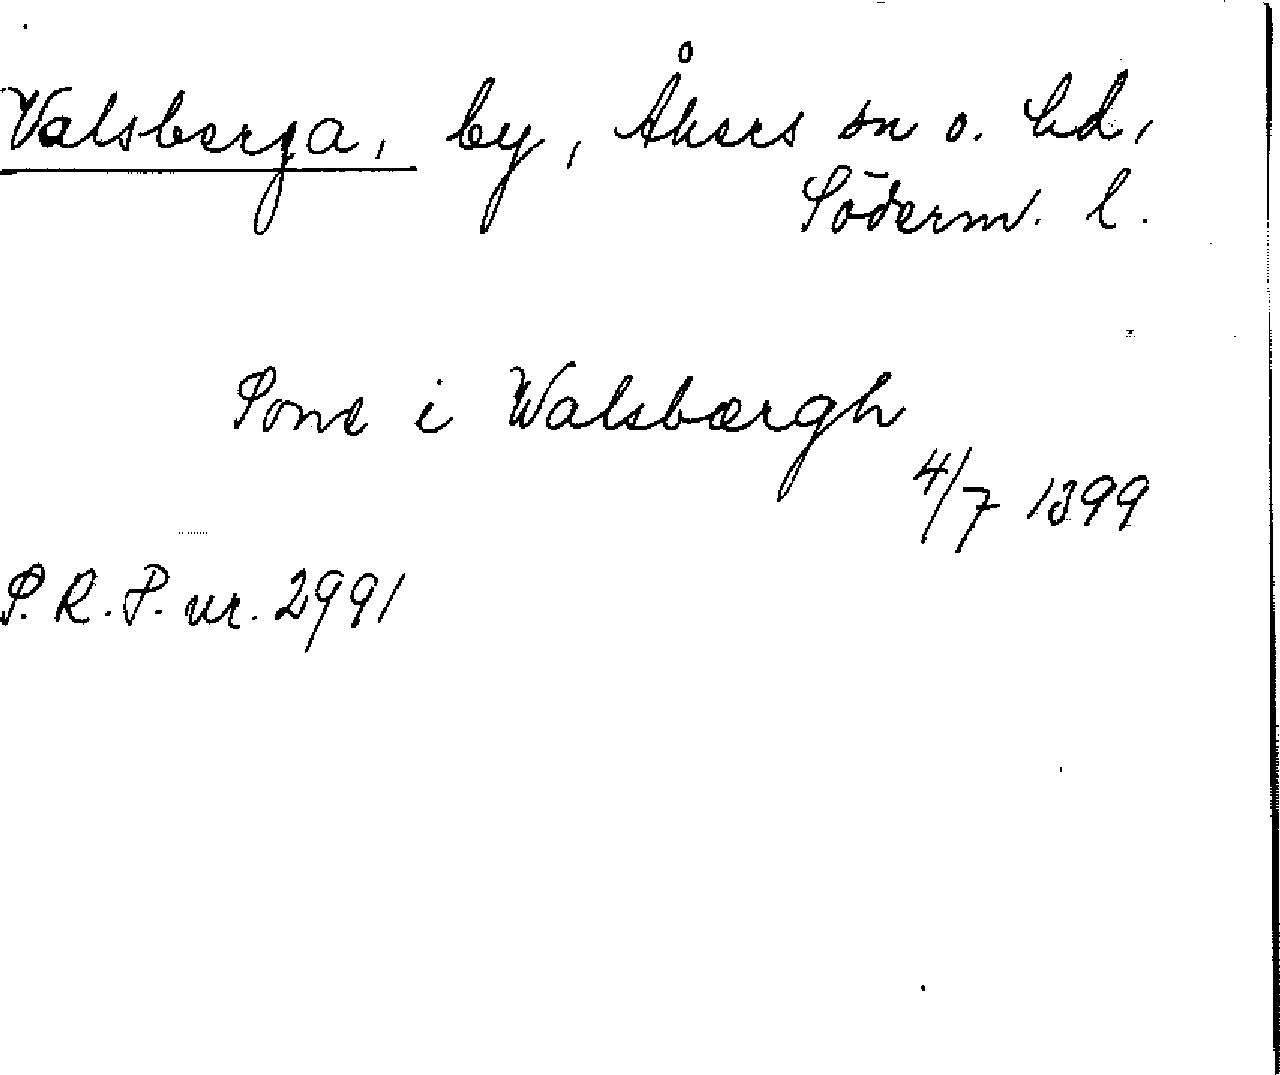 Valsberga, by, Åkers sn o. hd,
Söderm. l.
Sone i Walsbærgh
4/7 1399
S.R.P. nr. 2991